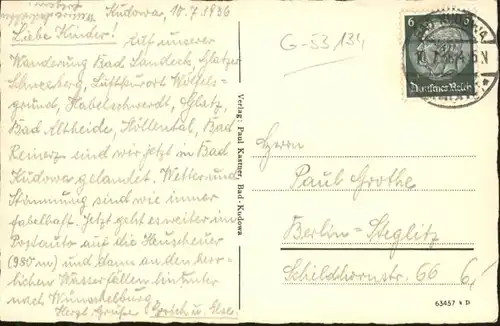 Kudowa, 10.7.1936
Liebe Kinder! Auf unserer
Wanderung Bad Landeck, Glatzer
Schneeberg, Luftkurort Wölfels-
grund, Habelschwerdt, Glatz,
Bad Altheide, Höllental, Bad
Reinerz sind wir jetzt in Bad
Kudowa gelandet. Wetter und
Stimmung sind wie immer
fabelhaft. Jetzt geht es weiter im
Postauto auf die Heuscheuer
(980 m) und dann an den herr-
lichen Wasserfällen hinunter
nach Wünschelburg
Herzl. Grüße u. Else.
Verlag: Paul Kastner, Bad-Kudowa
G-53134
6
Deutsches Reich
Herrn
Paul Grothe
Berlin-Steglitz
Schildhornstr. 66
6,-
63457 v D